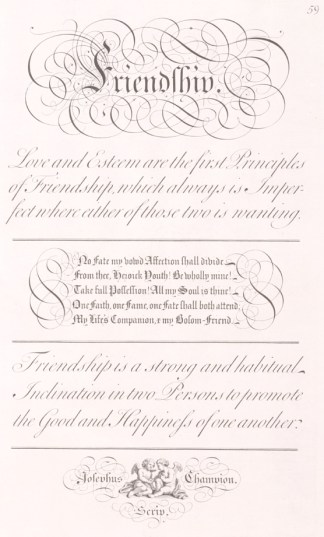 59
Friendship.
Love and Esteem are the first Principles
of Friendship, which always is Imper-
fect where either of those two is wanting.
No Fate my vow'd Affection shall divide
From thee, Heroick Youth! Be wholly mine!
Take full Possession! All my Soul is thine!
One Faith, one Fame, one Fate shall both attend,
My Life's Companion, & my Bosom-Friend.
Friendship is a strong and habitual
Inclination in two Persons to promote
the Good and Happiness of one another.
Josephus Champion.
Scrip.